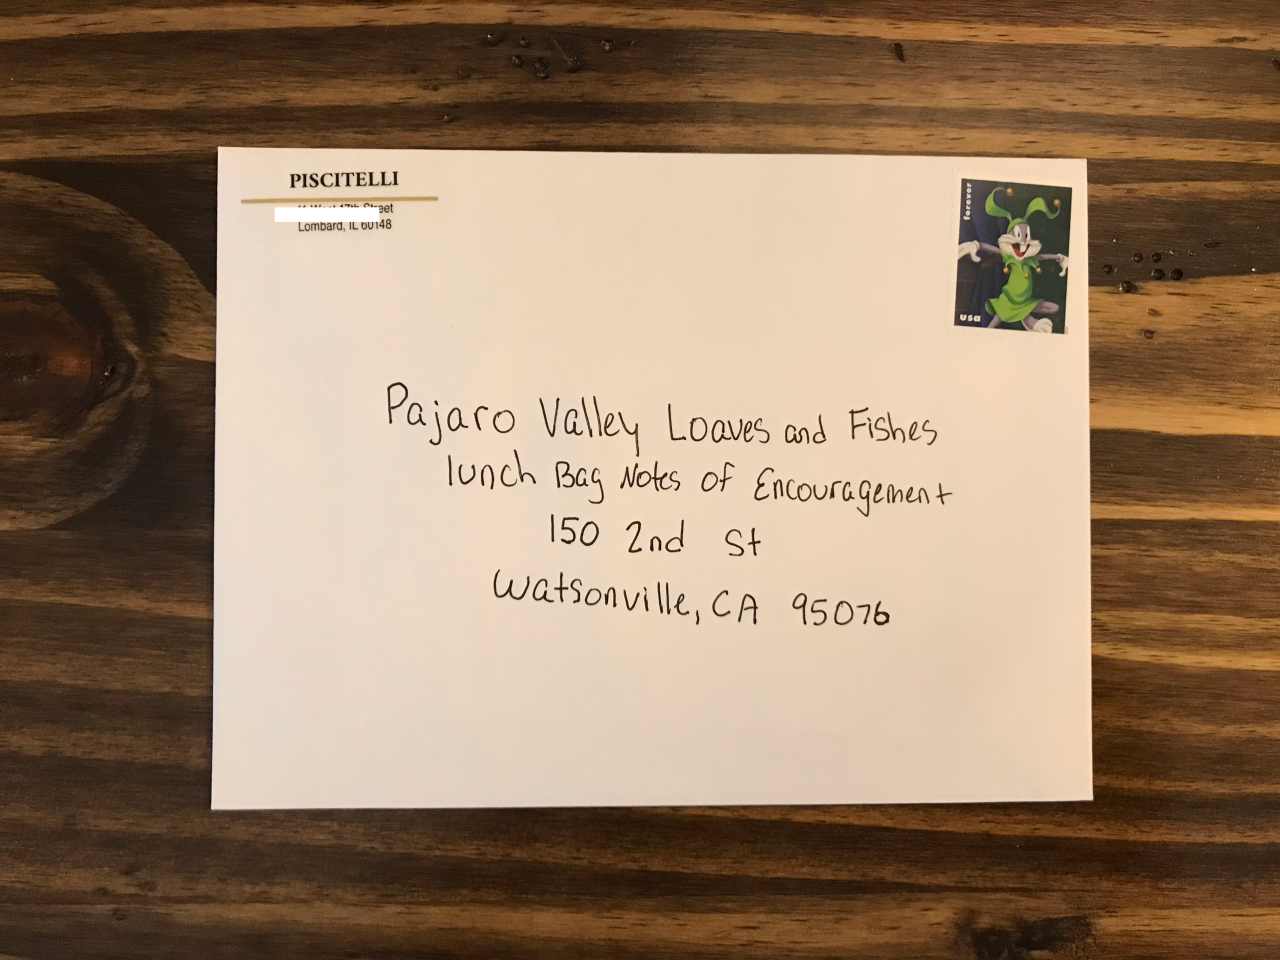 PISCITELLI
Street
Lombard, IL 60148
forever
usa
Pajaro Valley Loaves and Fishes
lunch Bag Notes of Encouragement
150 2nd St
Watsonville, CA 95076